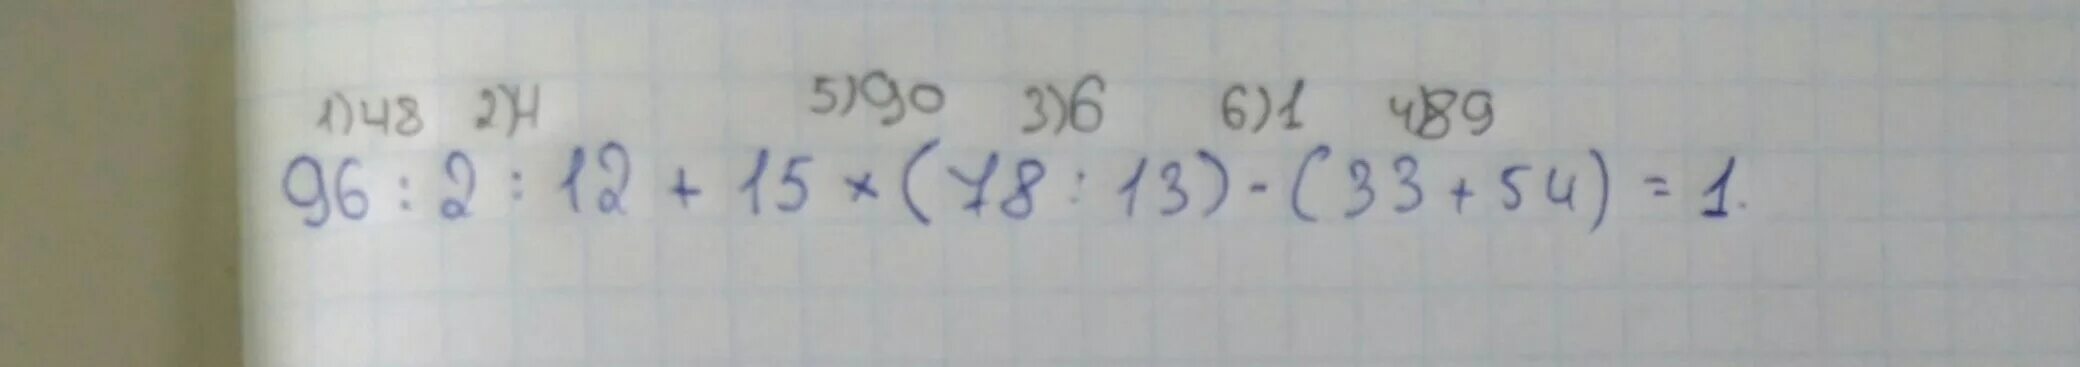 1)48 2)4 5)90 3)6 6)1 4)89
96 : 2 : 12 + 15 × (78 : 13) - (33 + 54) = 1.